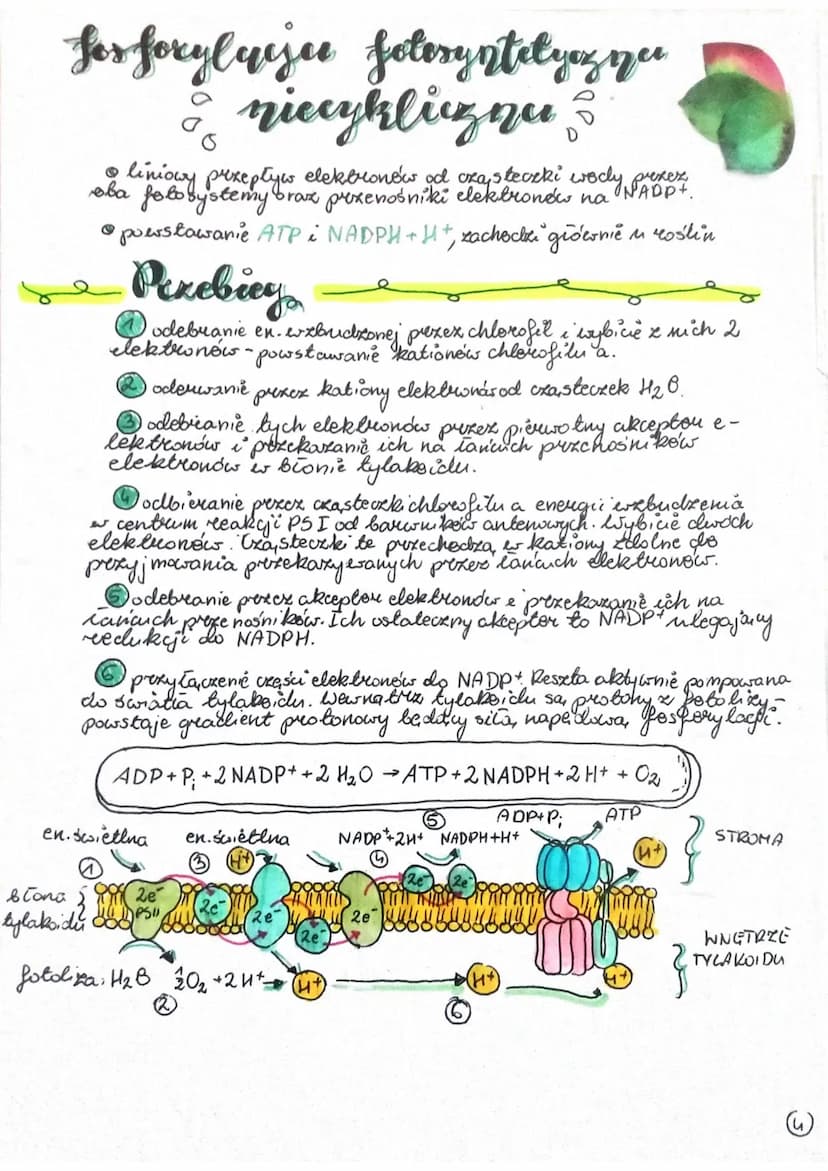 fosforylacja fotosyntetyczna
niecykliczna
liniowy przepływ elektronów od cząsteczki wody przez
oba fotosystemy oraz przenośniki elektronów na NADP⁺.
powstawanie ATP i NADPH + H⁺, zachodzi głównie u roślin
Przebieg
1 odebranie en. wzbudzonej przez chlorofil i wybicie z nich 2
elektronów - powstawanie kationów chlorofilu a.
2 oderwanie przez kationy elektronów od cząsteczek H₂O.
3 odebranie tych elektronów przez pierwotny akceptor e-
lektronów i przekazanie ich na łańcuch przenośników
elektronów w błonie tylakoidu.
4 odbieranie przez cząsteczki chlorofilu a energii wzbudzenia
w centrum reakcji PS I od barwników antenowych. Wybicie dwóch
elektronów. Cząsteczki te przechodzą w kationy zdolne do
przyjmowania przekazywanych przez łańcuch elektronów.
5 odebranie przez akceptor elektronów i przekazanie ich na
łańcuch przenośników. Ich ostateczny akceptor to NADP⁺ ulegający
redukcji do NADPH.
6 przyłączenie części elektronów do NADP⁺. Reszta aktywnie pompowana
do światła tylakoidu. Wewnątrz tylakoidu są protony z fotolizy-
powstaje gradient protonowy będący siłą napędową fosforylacji.
ADP + Pi + 2 NADP⁺ + 2 H₂O → ATP + 2 NADPH + 2 H⁺ + O₂
5 ADP+Pi ATP
en. świetlna en. świetlna NADP⁺+2H⁺ NADPH+H⁺ STROMA
1 3 H⁺ 4 H⁺
błona 2e⁻ 2e⁻ 2e⁻ 2e⁻ 2e⁻ 2e⁻
tylakoidu PSII 2e⁻
WNĘTRZE
TYLAKOIDU
fotoliza: H₂O ½O₂ + 2H⁺ H⁺ H⁺ H⁺
2 6
4